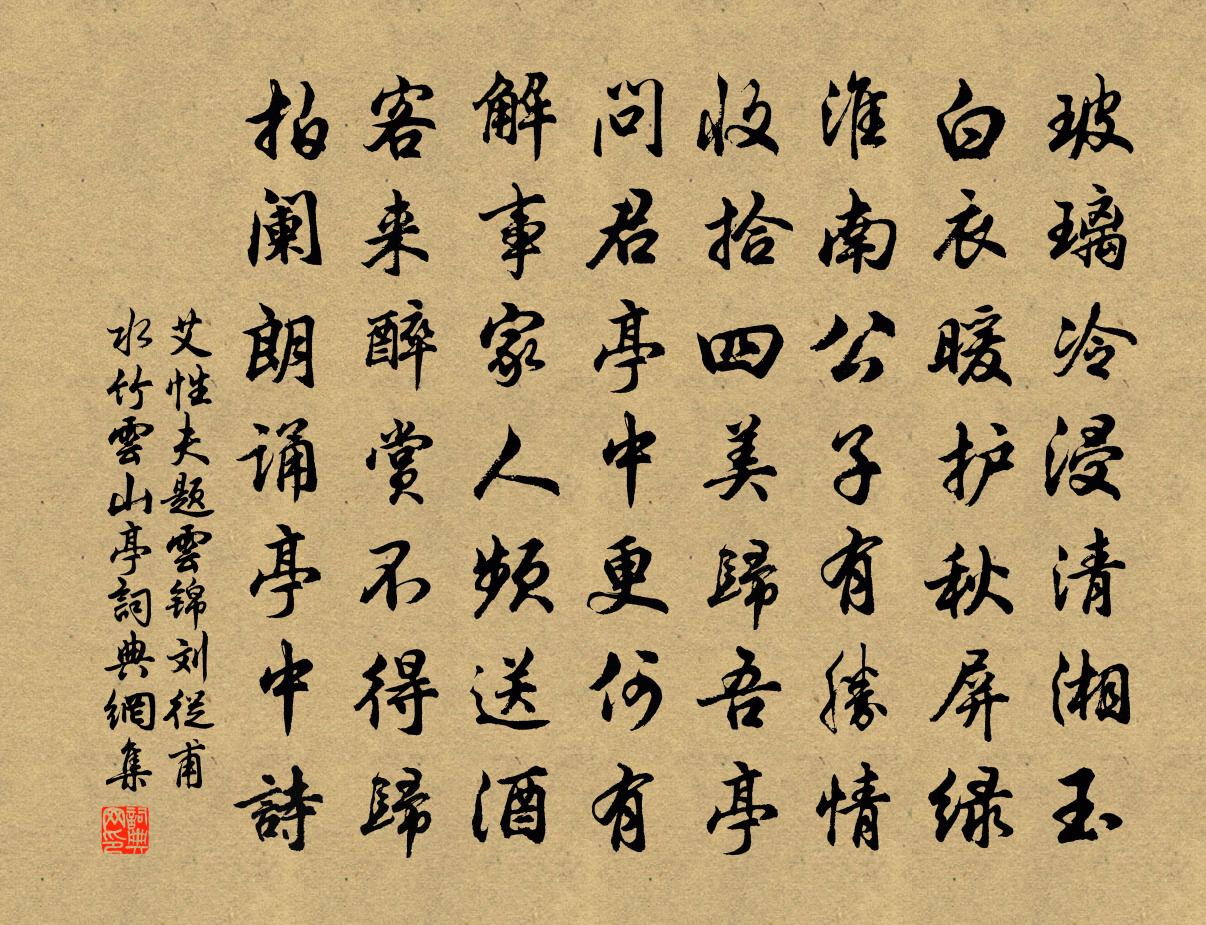 玻璃冷浸清湘玉
白衣暖护秋屏绿
淮南公子有勝情
收拾四美歸吾亭
问君亭中更何有
解事家人頻送酒
客来醉赏不得歸
拍阑朗诵亭中詩
艾性夫题雲锦刘従甫
水竹雲山亭詞典網集
詞典网印